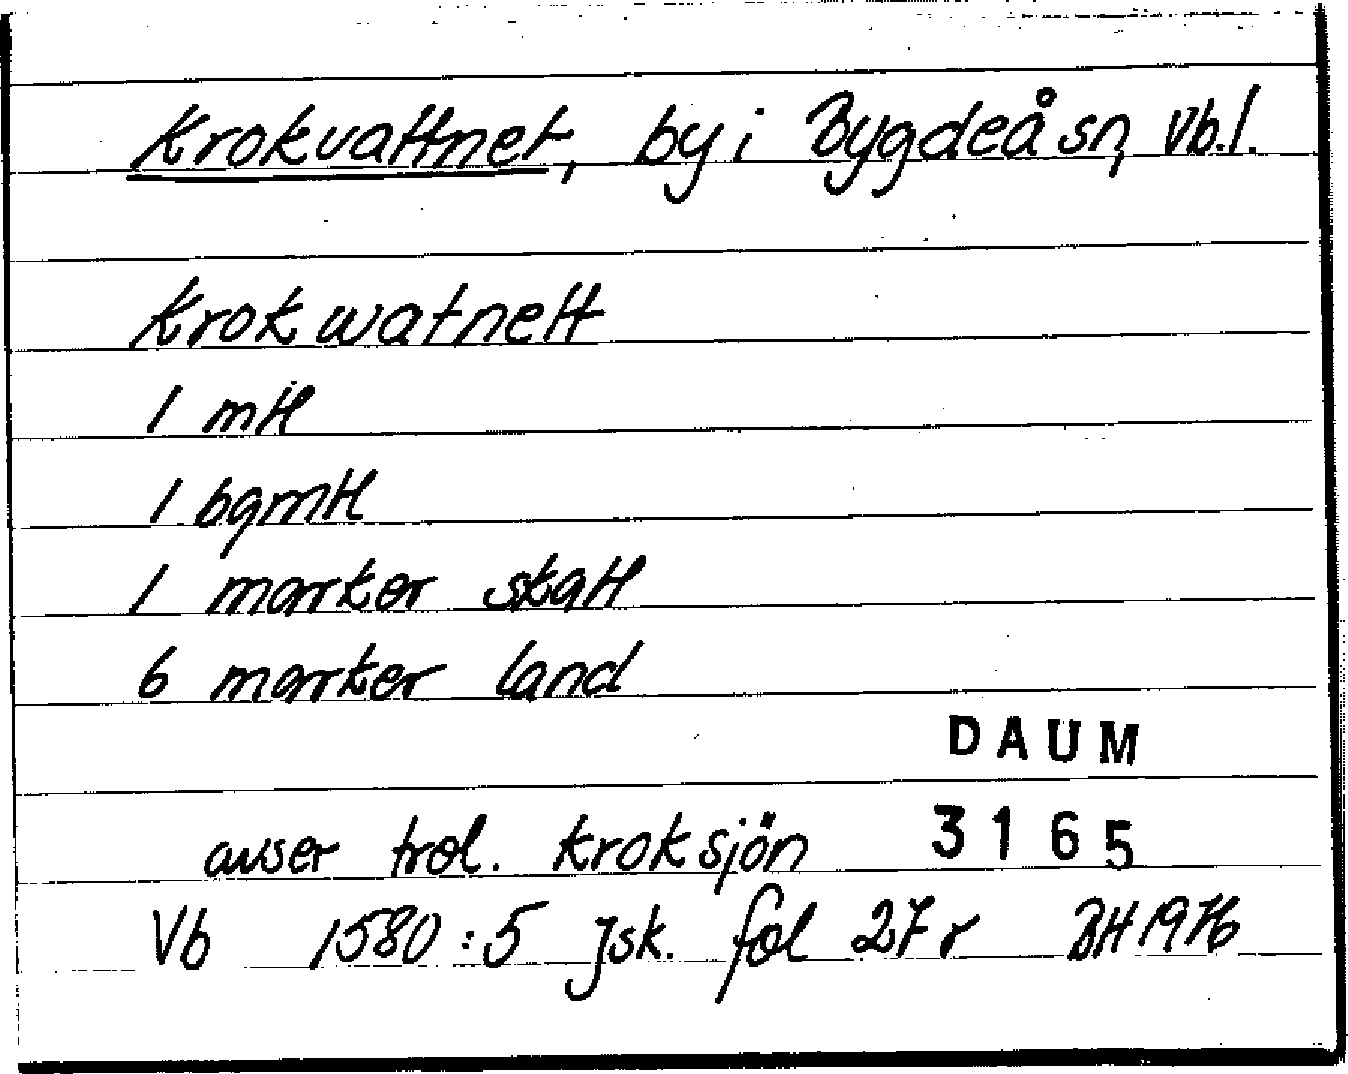 Krokvattnet, by i Bygdeå sn, Vb.l.
Krokwatnett
1 mtl
1 bgmtl
1 marker skatt
6 marker land
DAUM
avser trol. Kroksjön 3165
Vb 1580:5 Jsk. fol 27 r BH 1976